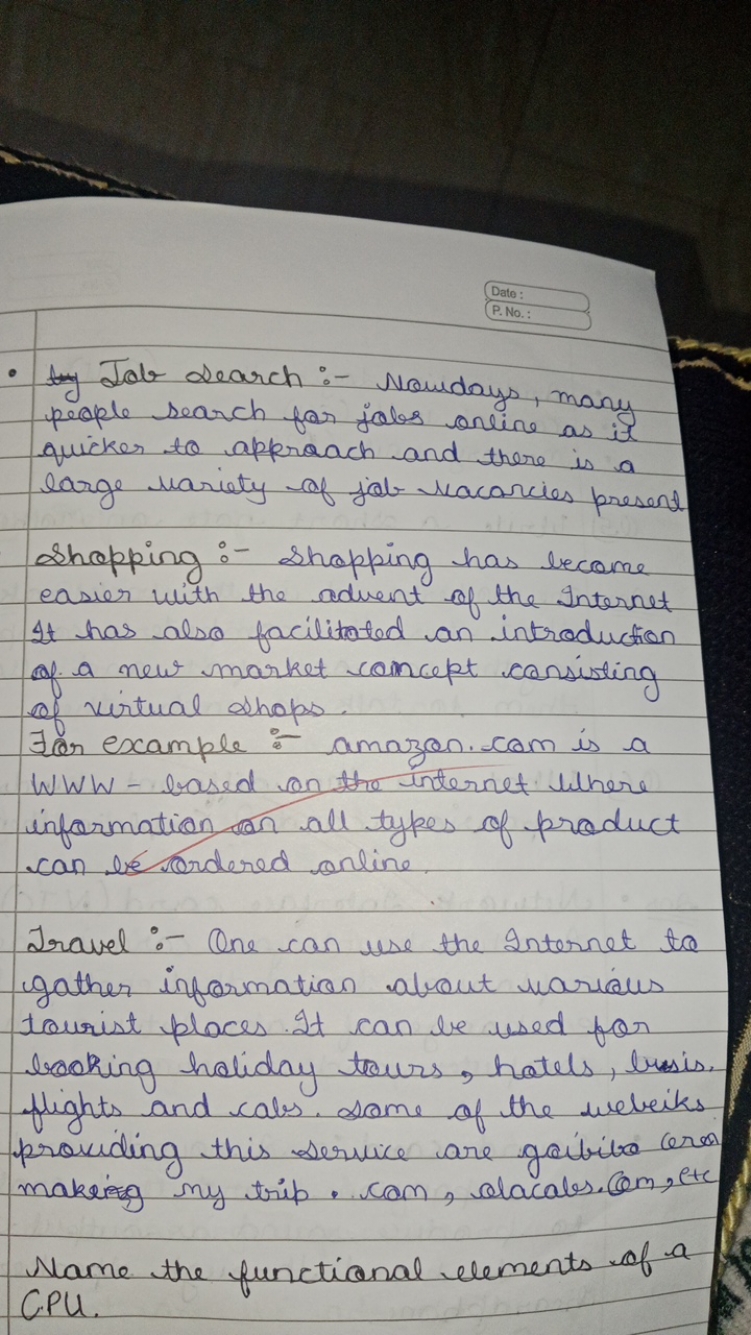 Date :
P. No. :
• Job search :- Nowdays, many
people search for jobs online as it
quicker to approach and there is a
large variety of job vacancies present
Shopping :- Shopping has become
easier with the advent of the Internet
It has also facilitated an introduction
of a new market comcept consisting
of virtual shops.
For example :- amazon.com is a
WWW - based on the internet Where
information on all types of product
can be ordered online.
Travel :- One can use the Internet to
gather information about various
tourist places. It can be used for
booking holiday tours, hotels,
flights and cabs. some of the
providing this service are goibibo
my trip . com, olacabs.com, etc
Name the functional elements of a
CPU.